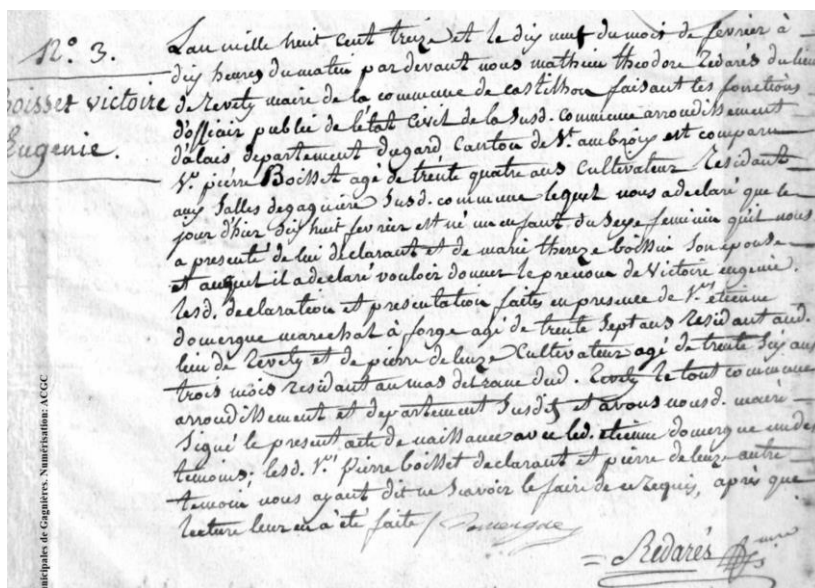 N.º 3.
Boisset victoire
Eugenie.
Lan mille huit cent treize et le dix neuf du mois de fevrier à
dix heures du matin par devant nous mathieu theodore Redarés du lieu
de Revety maire de la commune de castilhon faisant les fonctions
d'officier public de l'état civil de la susd. commune arroudissement
d'alais departement du gard Canton de St. ambroix est comparu
Sr. pierre Boisset agé de trente quatre ans Cultivateur Residant
aux Salles de gagniere susd. commune lequel nous a declaré que le
jour d'hier dix huit fevrier est né un enfant du sexe feminin qu'il nous
a presenté de lui declarant et de marie thereze boissin son epouse
et auquel il a declaré vouloir donner le prenom de Victoire eugenie.
lesd. declaration et presentation faites en presence de Sr. étienne
domergue marechal à forge agé de trente sept ans Residant aud.
lieu de Revety et de pierre deleuze Cultivateur agé de trente six ans
trois mois residant au mas dud. Revety le tout commune
arroudissement et departement susdits et avons nousd. maire
signé le present acte de naissance avec led. etienne domergue un des
temoins; lesd. Sr. Pierre boisset declarant et pierre deleuze autre
temoin nous ayant dit ne savoir le faire de ce requis, après que
lecture leur en a été faite / Domergue
= Redarés mre
nicipales de Gagnières. Numérisation: ACGC